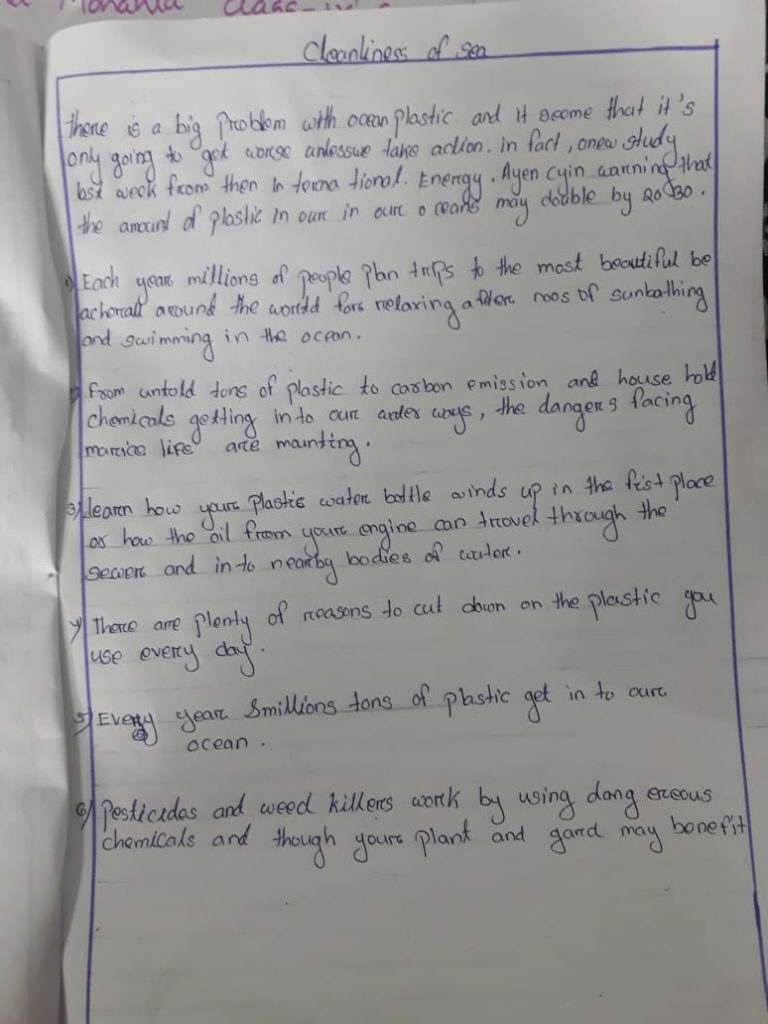 Mohanta Class-IV
Cleanliness of sea
There is a big problem with ocean plastic and it seeme that it's
only going to get worse unlesswe take action. in fact, onew study
last week from then In terna tional. Energy. Ayen cyin warning that
the amount of plastic in our in our o ceans may double by 2030.
1) Each year millions of people plan trips to the most beautiful be
achorall around the world fors relaxing after noos of sunbathing
and swimming in the ocean.
2) from untold tons of plastic to carbon emission and house hold
chemicals getting into our water ways, the dangers facing
marine life are maunting.
3) learn how your plastic water bottle winds up in the fist place
or how the oil from your engine can travel through the
sewer and into nearby bodies of water.
4) There are plenty of reasons to cut down on the plastic you
use every day.
5) Every year 8millions tons of plastic get in to our
ocean.
6) Pesticidas and weed killers work by using dang ereous
chemicals and though your plant and gard may benefit